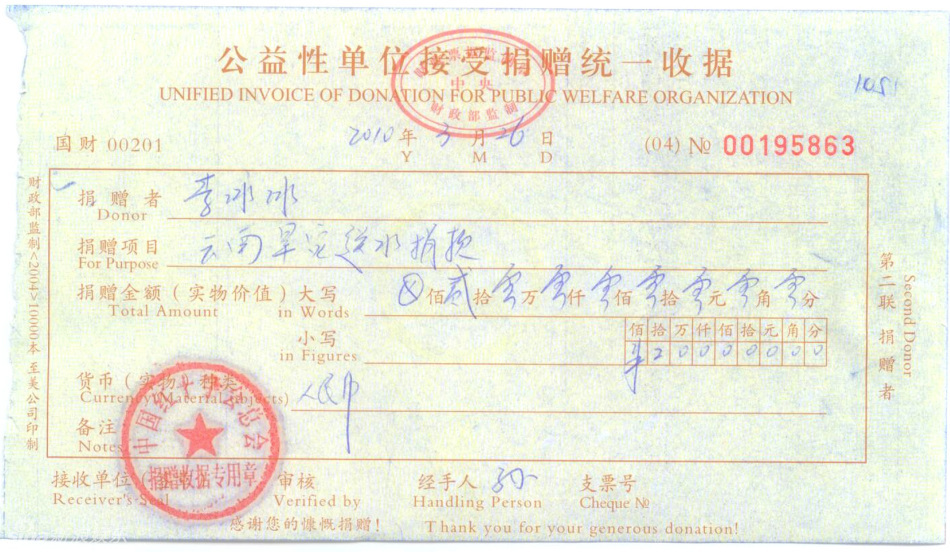 公益性单位接受捐赠统一收据
UNIFIED INVOICE OF DONATION FOR PUBLIC WELFARE ORGANIZATION
中央
财政部监制
1051
国财 00201
2010 年 3 月 26 日
Y M D
(04) № 00195863
财政部监制<2004>10000本 至美公司印制
捐赠者 李冰冰
Donor
捐赠项目 云南旱灾送水捐款
For Purpose
捐赠金额（实物价值）大写 ⊗佰贰拾零万零仟零佰零拾零元零角零分
Total Amount in Words
小写 佰拾万仟佰拾元角分
in Figures ¥20000000
货币（实物）种类 人民币
Currency(Material objects)
备注
Notes
第二联 捐赠者
Second Donor
中国红十字会总会
捐赠收据专用章
接收单位
Receiver's Seal
审核
Verified by
经手人 孙
Handling Person
支票号
Cheque №
感谢您的慷慨捐赠！ Thank you for your generous donation!